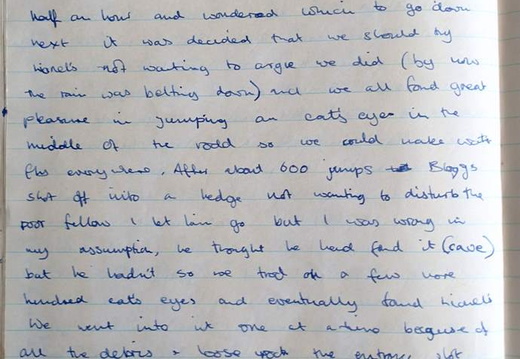 half an hour and wondered which to go down
next it was decided that we should try
Lionel's not waiting to argue we did (by now
the rain was belting down) and we all fond great
pleasure in jumping on cat's eyes in the
middle of the road so we could make water
flow everywhere. After about 600 jumps Bloggs
shot off into a hedge not wanting to disturb the
poor fellow I let him go but I was wrong in
my assumption, he thought he had fond it (cave)
but he hadn't so we trod on a few more
hundred cat's eyes and eventually fond Lionel's
We went into it one at a time because of
all the debris + loose rock the entrance slot